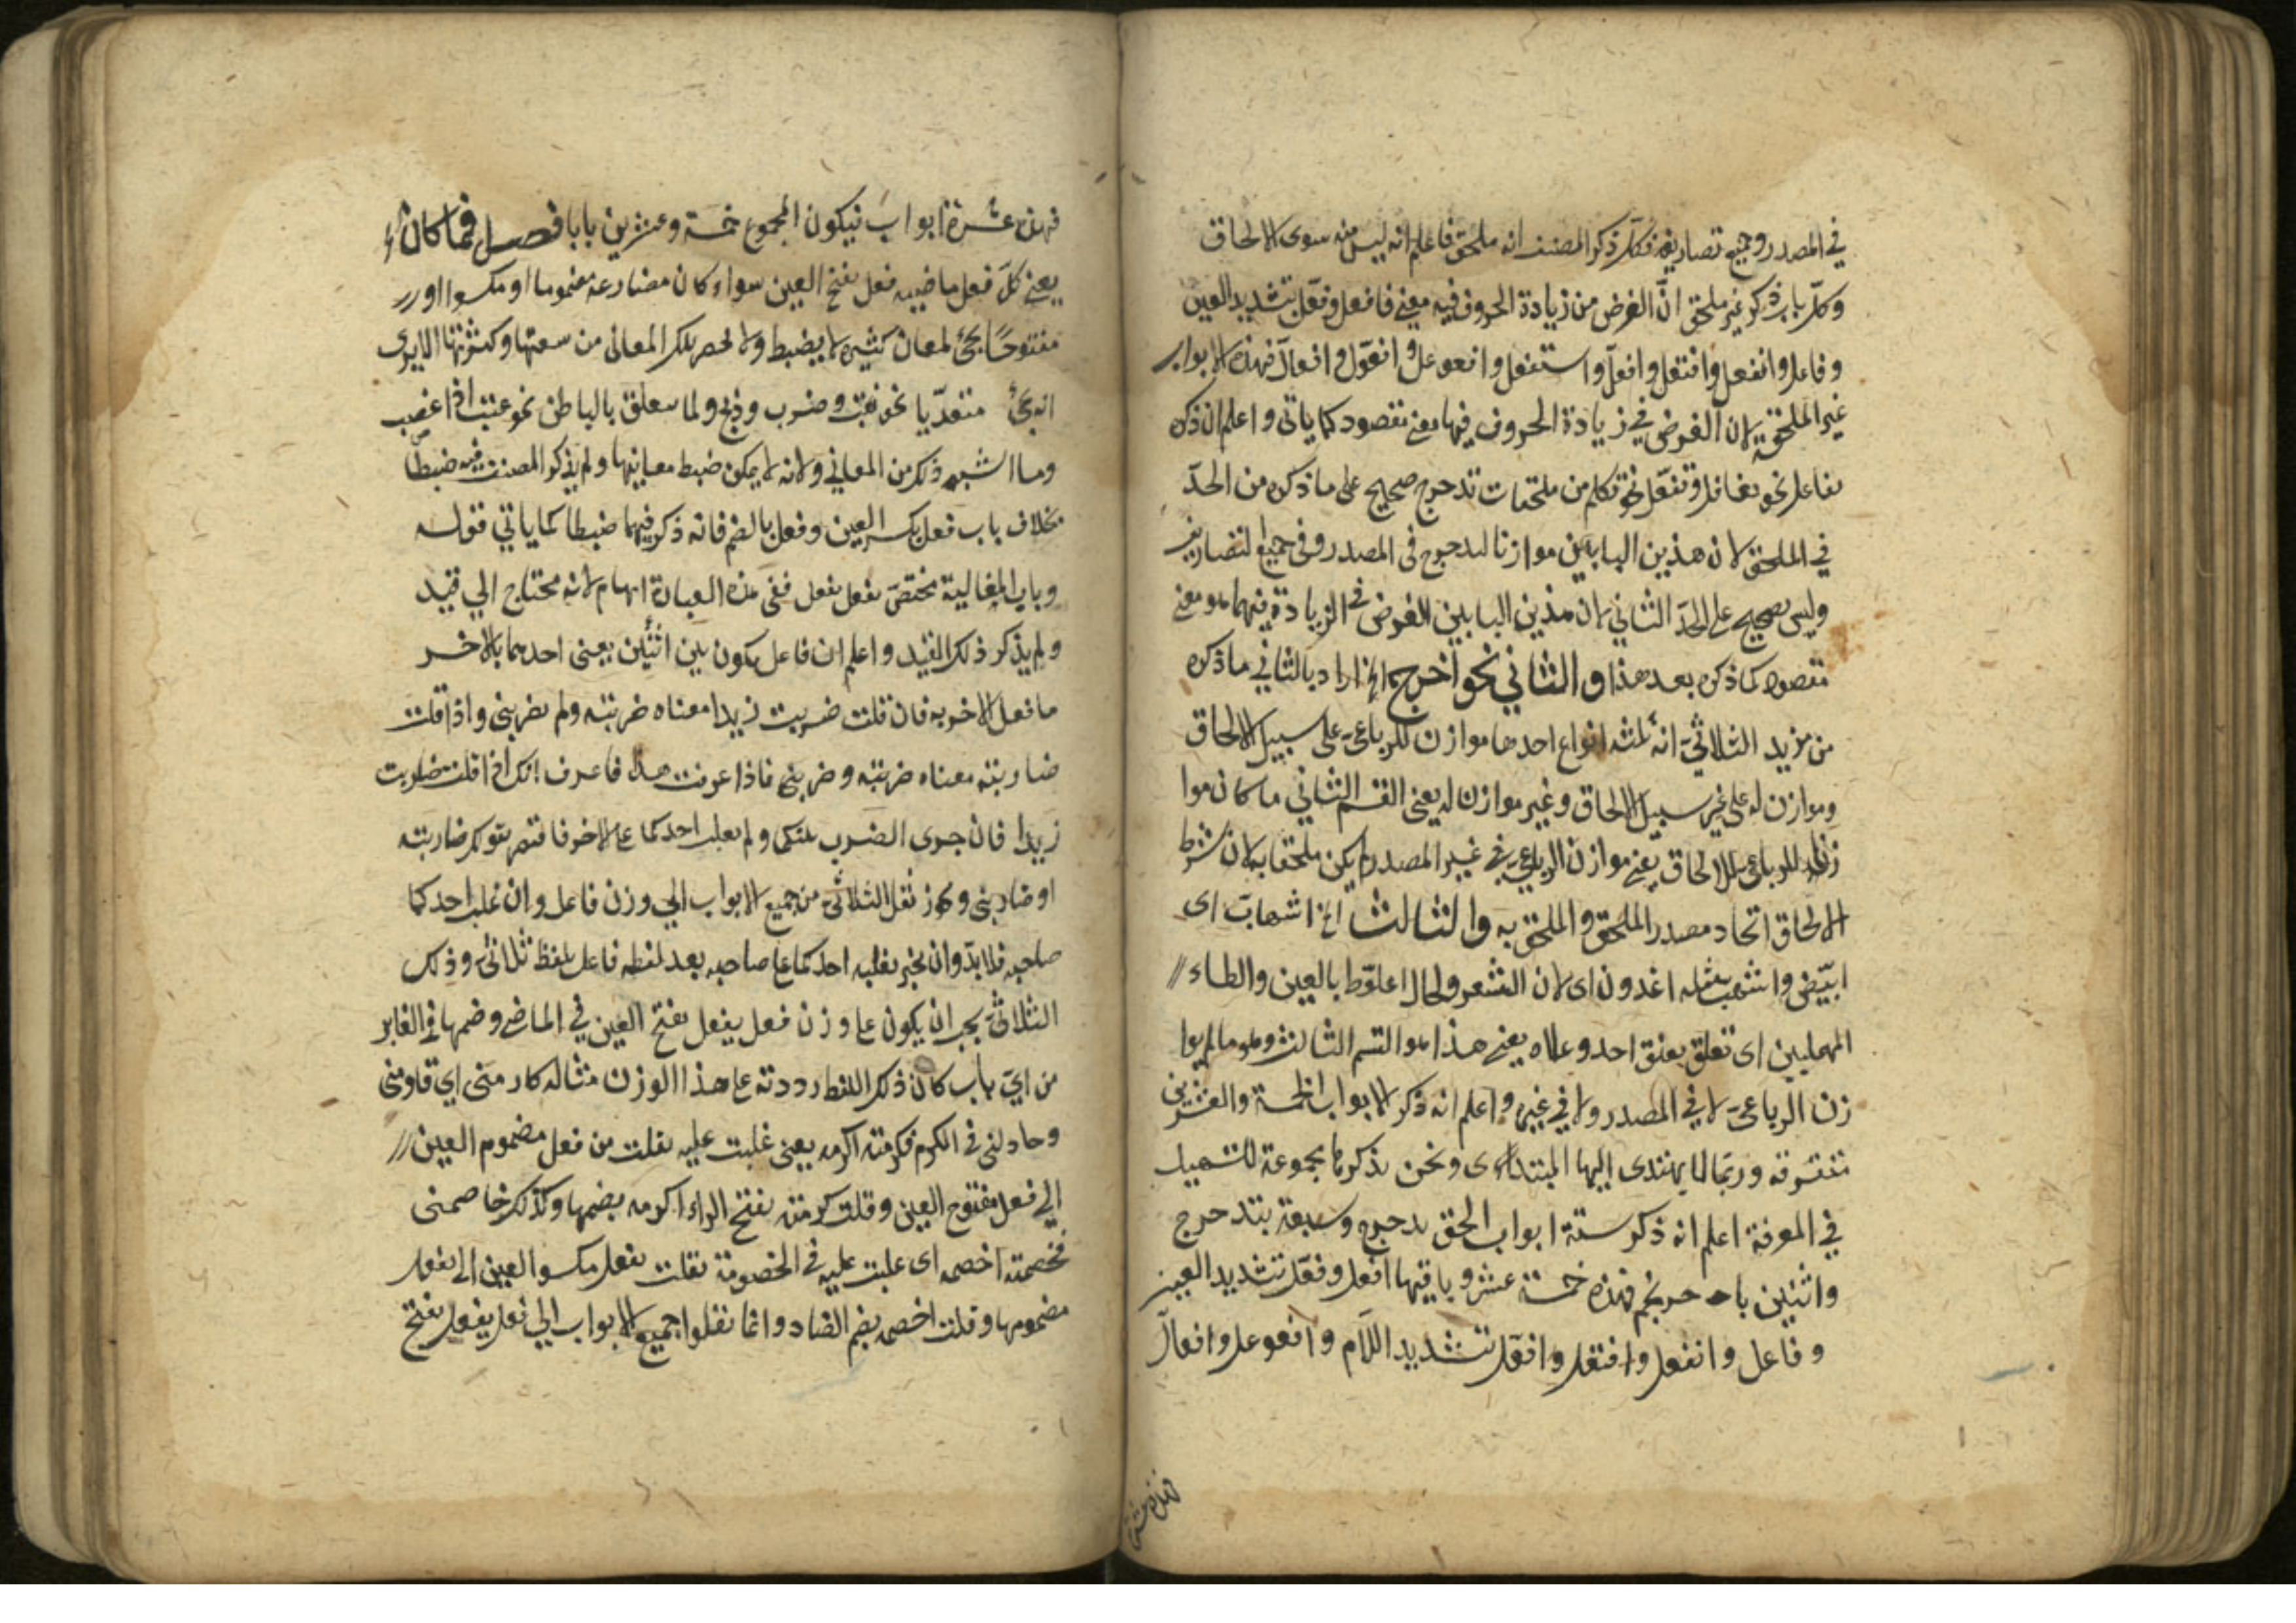 في المصدر وجميع تصاريفه فكل ذكر المصنف انه ملحق فاعلم انه ليس منه سوى الالحاق
وكل باب ذكر غير ملحق انّ الغرض من زيادة الحروف فيه معنى فافعل وفعّل بتشديد العين
وفاعل وانفعل وافتعل وافعلّ واستفعل وافعوعل وافعوّل وافعالّ فهذه الابواب
غير الملحقة لان الغرض في زيادة الحروف فيها معنى مقصود كما ياتى واعلم ان ذكر
تفاعل نحو تغافل وتفعّل نحو تكلم من ملحقات تدحرج صحيح على ما ذكره من الحدّ
في الملحق لان هذين البابين موازنا لتدحرج فى المصدر وفى جميع التصاريف
وليس بصحيح على الحدّ الثاني لان هذين البابين الغرض في الزيادة فيهما هو معنى
مقصود كما ذكره بعد هذا والثاني نحو اخرج الخ اراد بالثاني ما ذكره
من مزيد الثلاثيّ انه ثلثه انواع احدها موازن للرباعىّ على سبيل الالحاق
وموازن له على غير سبيل الالحاق وغير موازن له يعنى القسم الثاني ما كان موا
زنا للرباعىّ لا للالحاق يعنى موازن الرباعىّ في غير المصدر لم يكن ملحقا به لان شرط
الالحاق اتحاد مصدر الملحق والملحق به والثالث الخ اشهابّ اى
ابيّض واشهب مثله اغدودن اى لان الشعر ولحال اعلوّط بالعين والطاء
المهملين اى تعلق بعنق احد وعلاه يعنى هذا هو القسم الثالث وهو ما لم يوا
زن الرباعىّ لا في المصدر ولا في غيره واعلم انه ذكر الابواب الخمسة والعشرين
متفرقه وربّما لا يهتدى اليها المبتداءى ونحن نذكرها مجموعة لتسهيل
في المعرفة اعلم انه ذكر ستة ابواب الحق بدحرج وسبعة بتدحرج
واثنين باحرنجم فهذه خمسة عشر وباقيها افعل وفعّل بتشديد العين
وفاعل وانفعل وافتعل وافعلّ بتشديد اللام وافعوعل وافعالّ
فهذه عشرة
فهذه عشرة ابواب فيكون المجموع خمسة وعشرين بابا فصل فما كان
يعنى كلّ فعل ماضيه فعل بفتح العين سواء كان مضارعه مضموما او مكسورا او
مفتوحًا يجئ لمعان كثيره لا يضبط ولا لحصر بلك المعانى من سعتها وكثرتها الا يرى
انه يجئ متعدّيا نحو نعت وضرب وذبح ولما يتعلق بالباطن نحو عتب اذا غضب
وما اشبه ذلك من المعاني ولانه لا يمكن ضبط معانيها ولم يذكر المصنف فيه ضبطا
بخلاف باب فعل بكسر العين وفعل بالضم فانه ذكر فيهما ضبطا كما ياتي قوله
وباب المغالبة مختصّ بفعل يفعل ففى هذه العبارة ابهام لانه محتاج الي قيد
ولم يذكر ذلك القيد واعلم ان فاعل يكون بين اثنين يعنى احدهما بالاخر
ما فعل الاخر به فان قلت ضربت زيدا معناه ضربته ولم يضربنى واذا قلت
ضاربته معناه ضربته وضربنى فاذا عرفت هذا فاعرف انك اذا قلت ضاربت
زيدا فان جرى الضرب بينكما ولم يغلب احدكما على الاخر فاقتصر بقولك ضاربته
او ضاربنى وجاز نقل الثلاثىّ من جميع الابواب الي وزن فاعل وان غلب احدكما
صاحبه فلا بدّ وان يخبر بغلبه احدكما على صاحبه بعد لفظه فاعل بلفظ ثلاثىّ وذلك
الثلاثىّ يجب ان يكون على وزن فعل يفعل بفتح العين في الماضى وضمها في الغابر
من ايّ باب كان ذلك اللفظ رددته على هذا الوزن مثاله كارمنى اي قاومنى
وحادلنى فى الكرم فكرمته اكرمه يعنى غلبت عليه نقلت من فعل مضموم العين
الي فعل مفتوح العين وقلت كرمته بفتح الراء اكرمه بضمها وكذلك خاصمنى
فخصمته اخصمه اى غلبت عليه في الخصومة نقلت يفعل مكسور العين الى يفعل
مضمومها وقلت اخصمه بضم الصاد وانما نقلوا جميع الابواب الي فعل يفعل بفتح